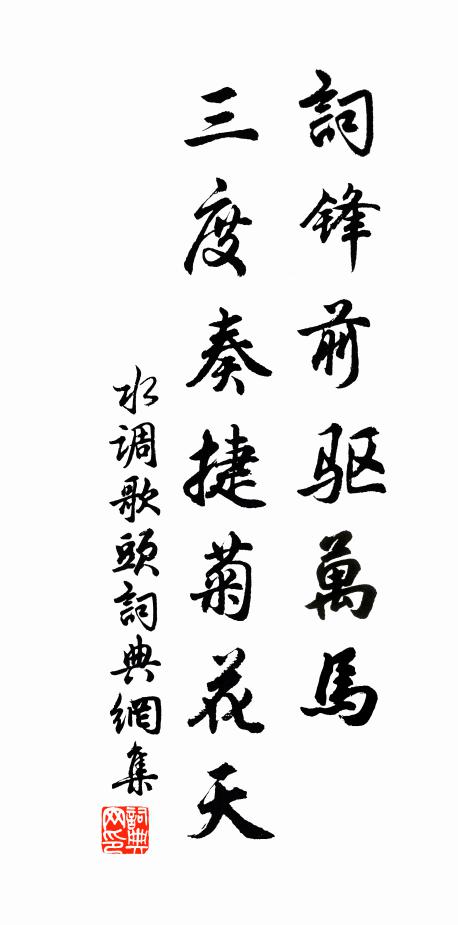 詞锋前驱萬馬
三度奏捷菊花天
水调歌頭詞典網集
詞典网印